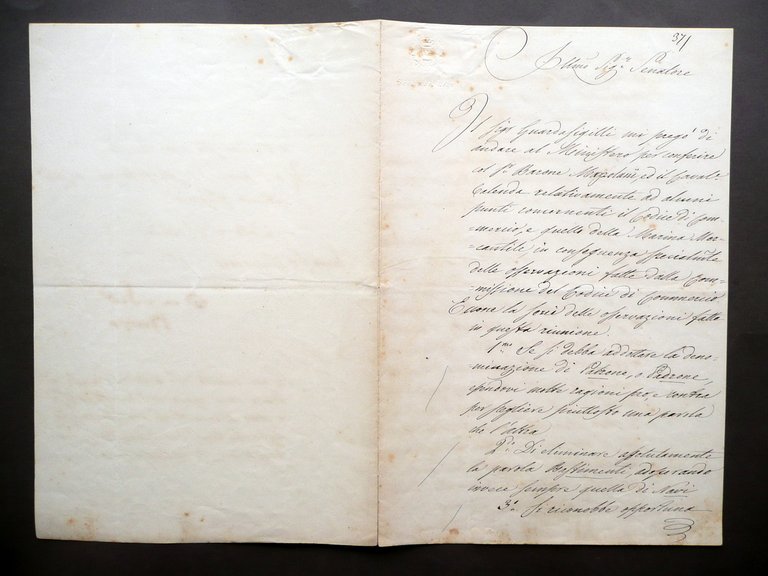 37
Illmo Sigr Senatore
Il Sigr Guardasigilli mi pregò di
andare al Ministero per conferire
col Sr Barone Mazzolani ed il Cavalr
Calenda relativamente ad alcuni
punti concernenti il Codice di Com-
mercio, e quello della Marina Mer-
cantile in conseguenza
delle osservazioni fatte dalla Com-
missione del Codice di Commercio
E una la serie delle osservazioni fatte
in questa riunione.
1mo Se si debba addottare la deno-
minazione di Patrone, o Padrone,
essendovi molte ragioni pro, e contra
per scegliere piuttosto una parola
che l'altra
2do Di eliminare assolutamente
la parola Bastimenti adoperando
invece sempre quella di Navi
3o Si riconobbe opportuna